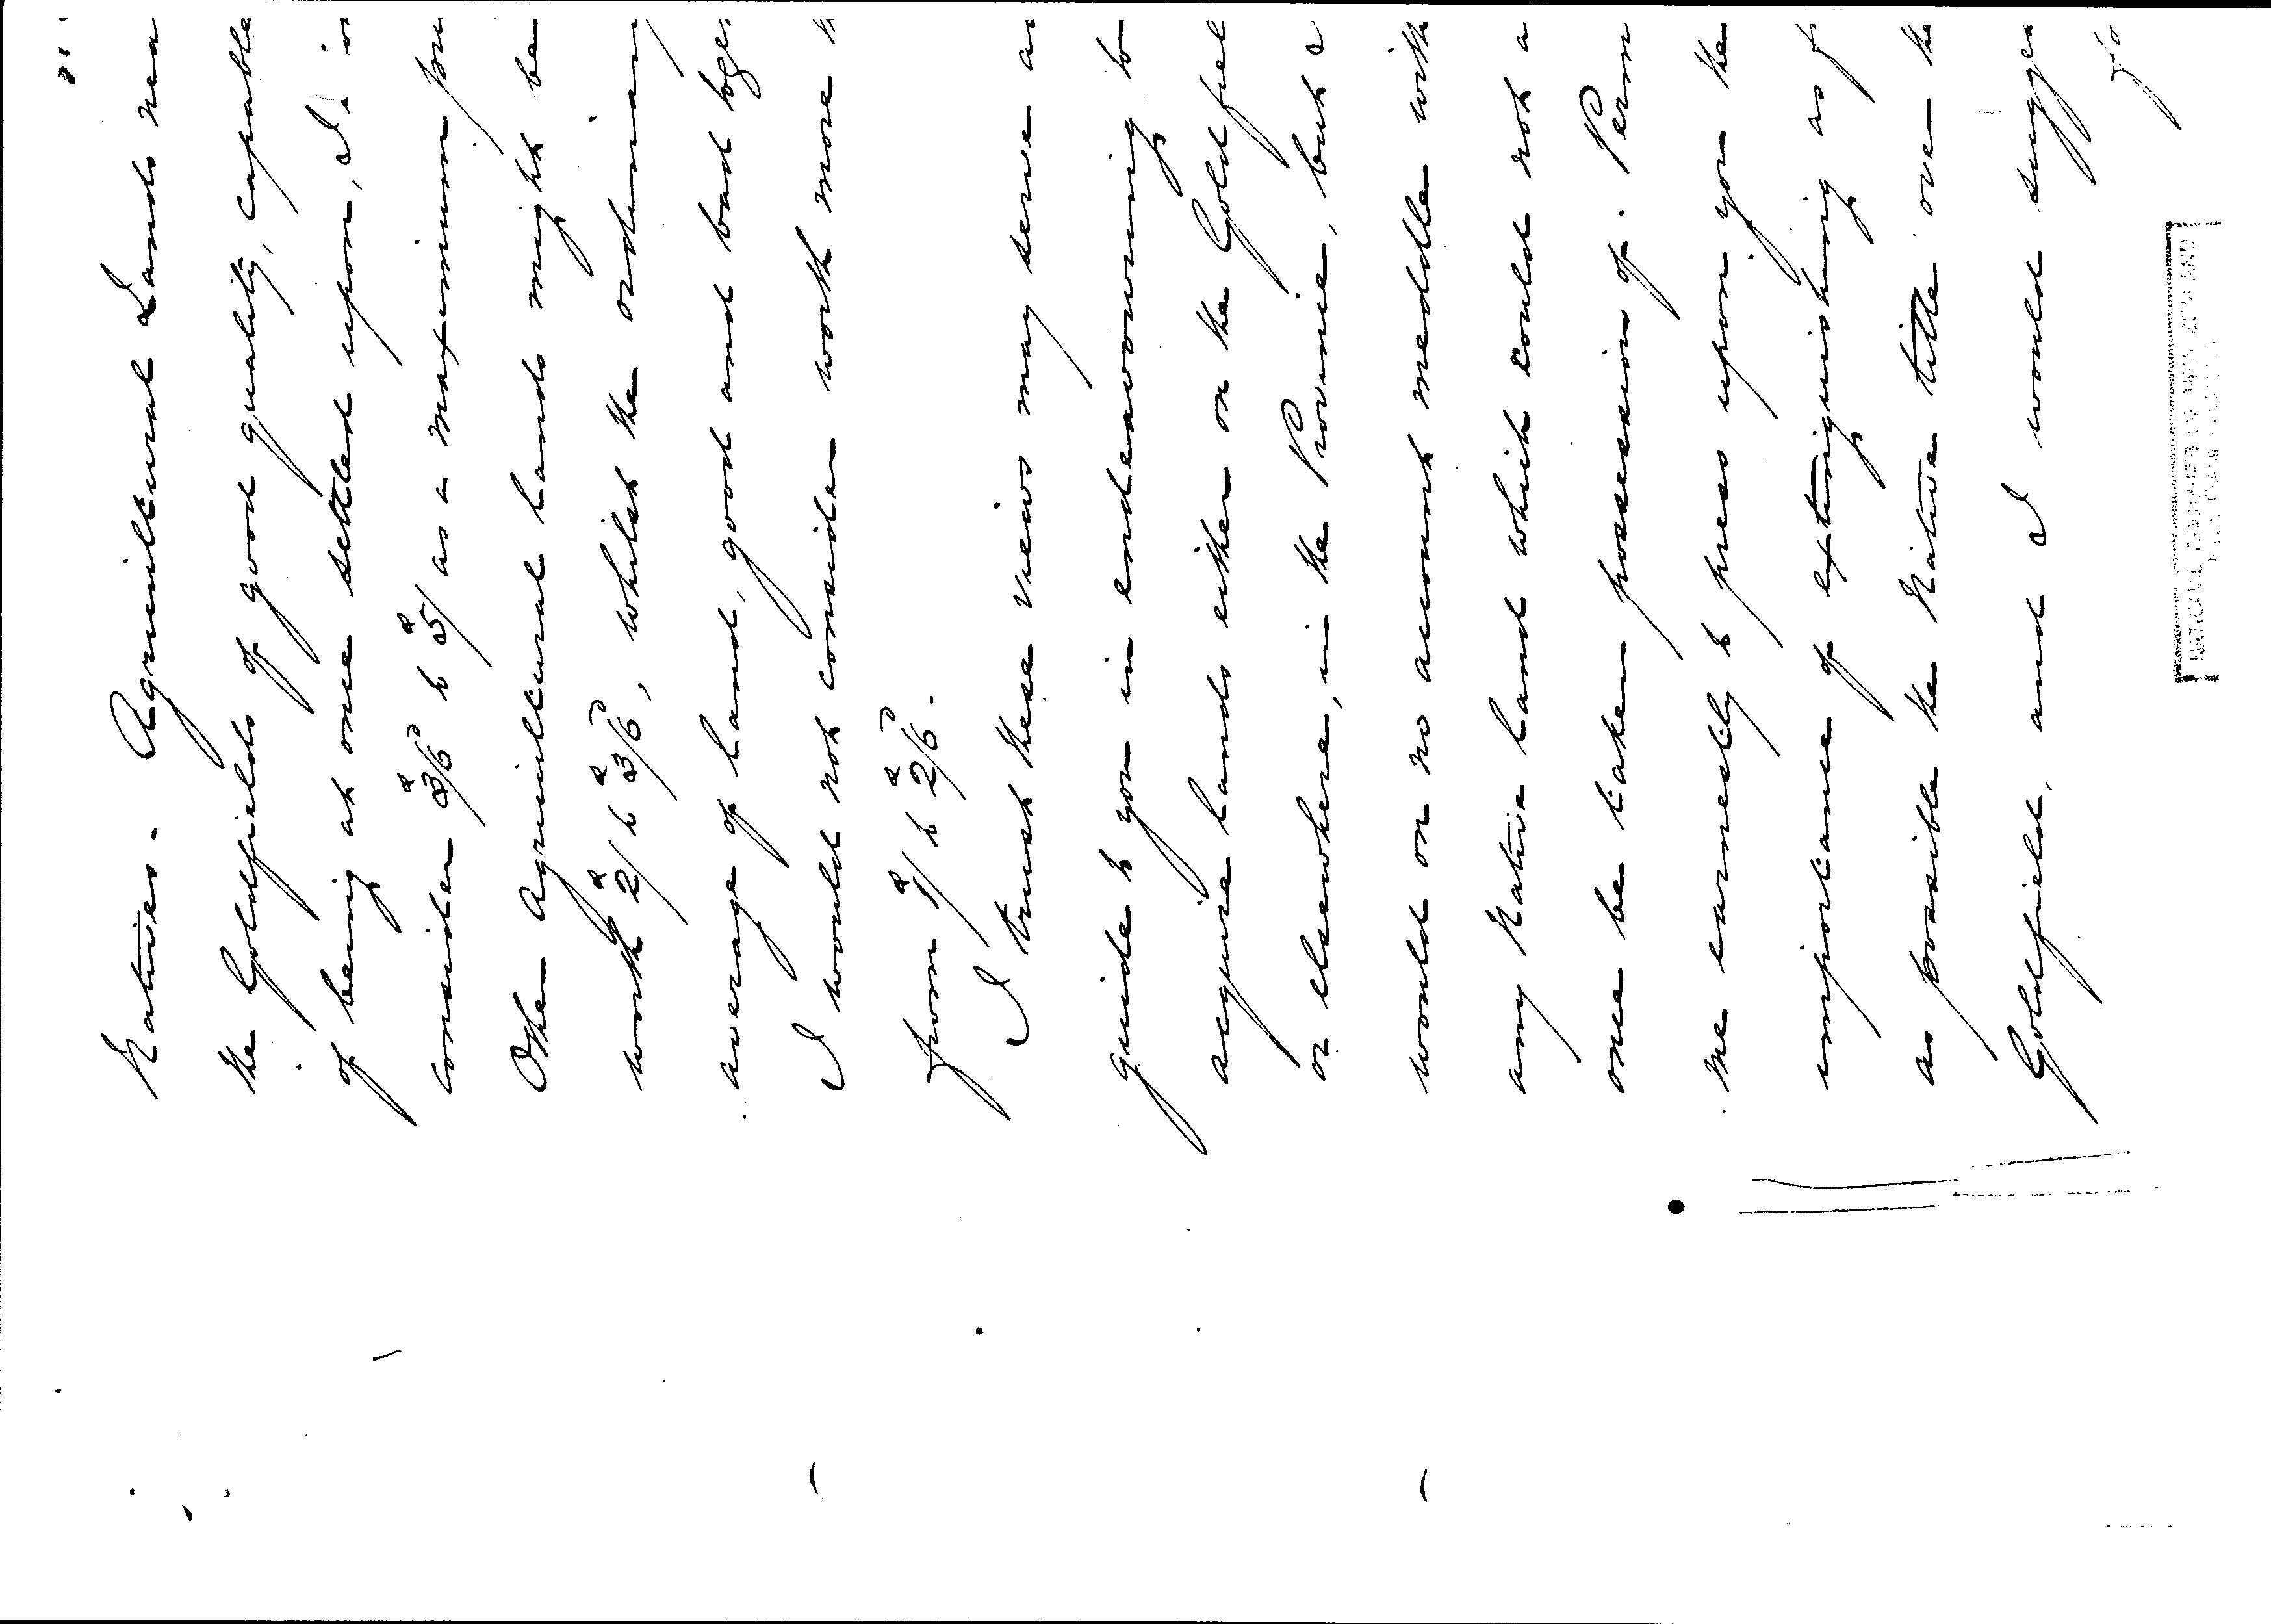 Natives. Agricultural Lands nea
the Goldfields of good quality, capable
of being at once settled upon, I
consider 3/6 to 5/ as a maximum
Other Agricultural lands might be
worth 2/ to 3/6, whilst the ordinary
average of land, good and bad toge
I would not consider worth more
from 1/ to 2/6.
I trust these views may serve a
guide to you in endeavouring to
acquire lands either on the Gold fiel
or elsewhere, in the Province, but I
would on no account meddle with
any Native land which could not a
once be taken possession of. Perm
me earnestly to press upon you the
importance of extinguishing as f
as possible the Native title over the
Goldfield, and I would sugges